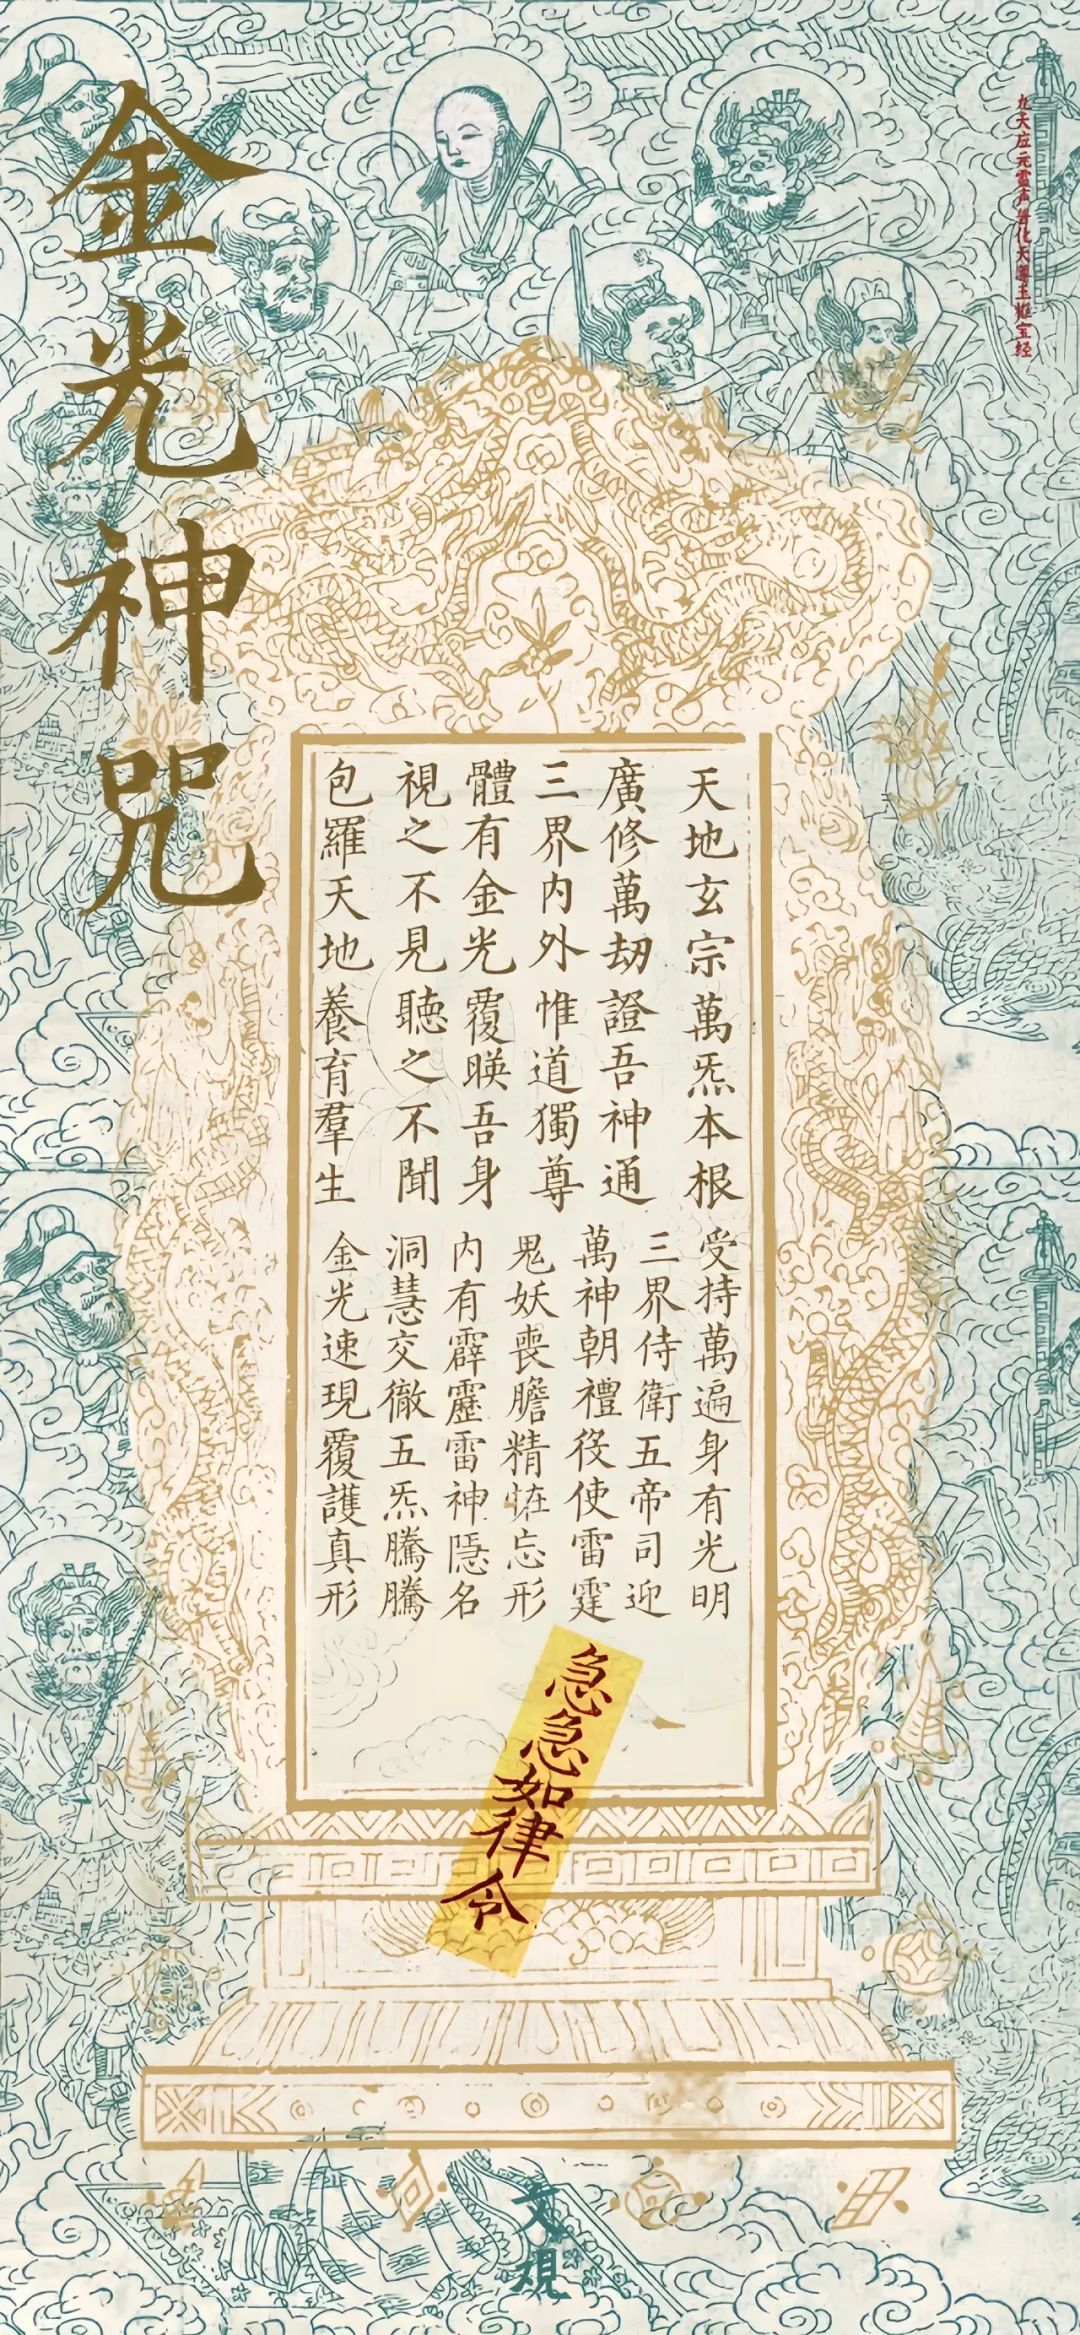 九天应元雷声普化天尊玉枢宝经
金光神咒
天地玄宗萬炁本根
廣修萬劫證吾神通
三界内外惟道獨尊
體有金光覆暎吾身
視之不見聽之不聞
包羅天地養育羣生
受持萬遍身有光明
三界侍衛五帝司迎
萬神朝禮役使雷霆
鬼妖喪膽精恠忘形
内有霹靂雷神隱名
洞慧交徹五炁騰騰
金光速現覆護真形
急急如律令